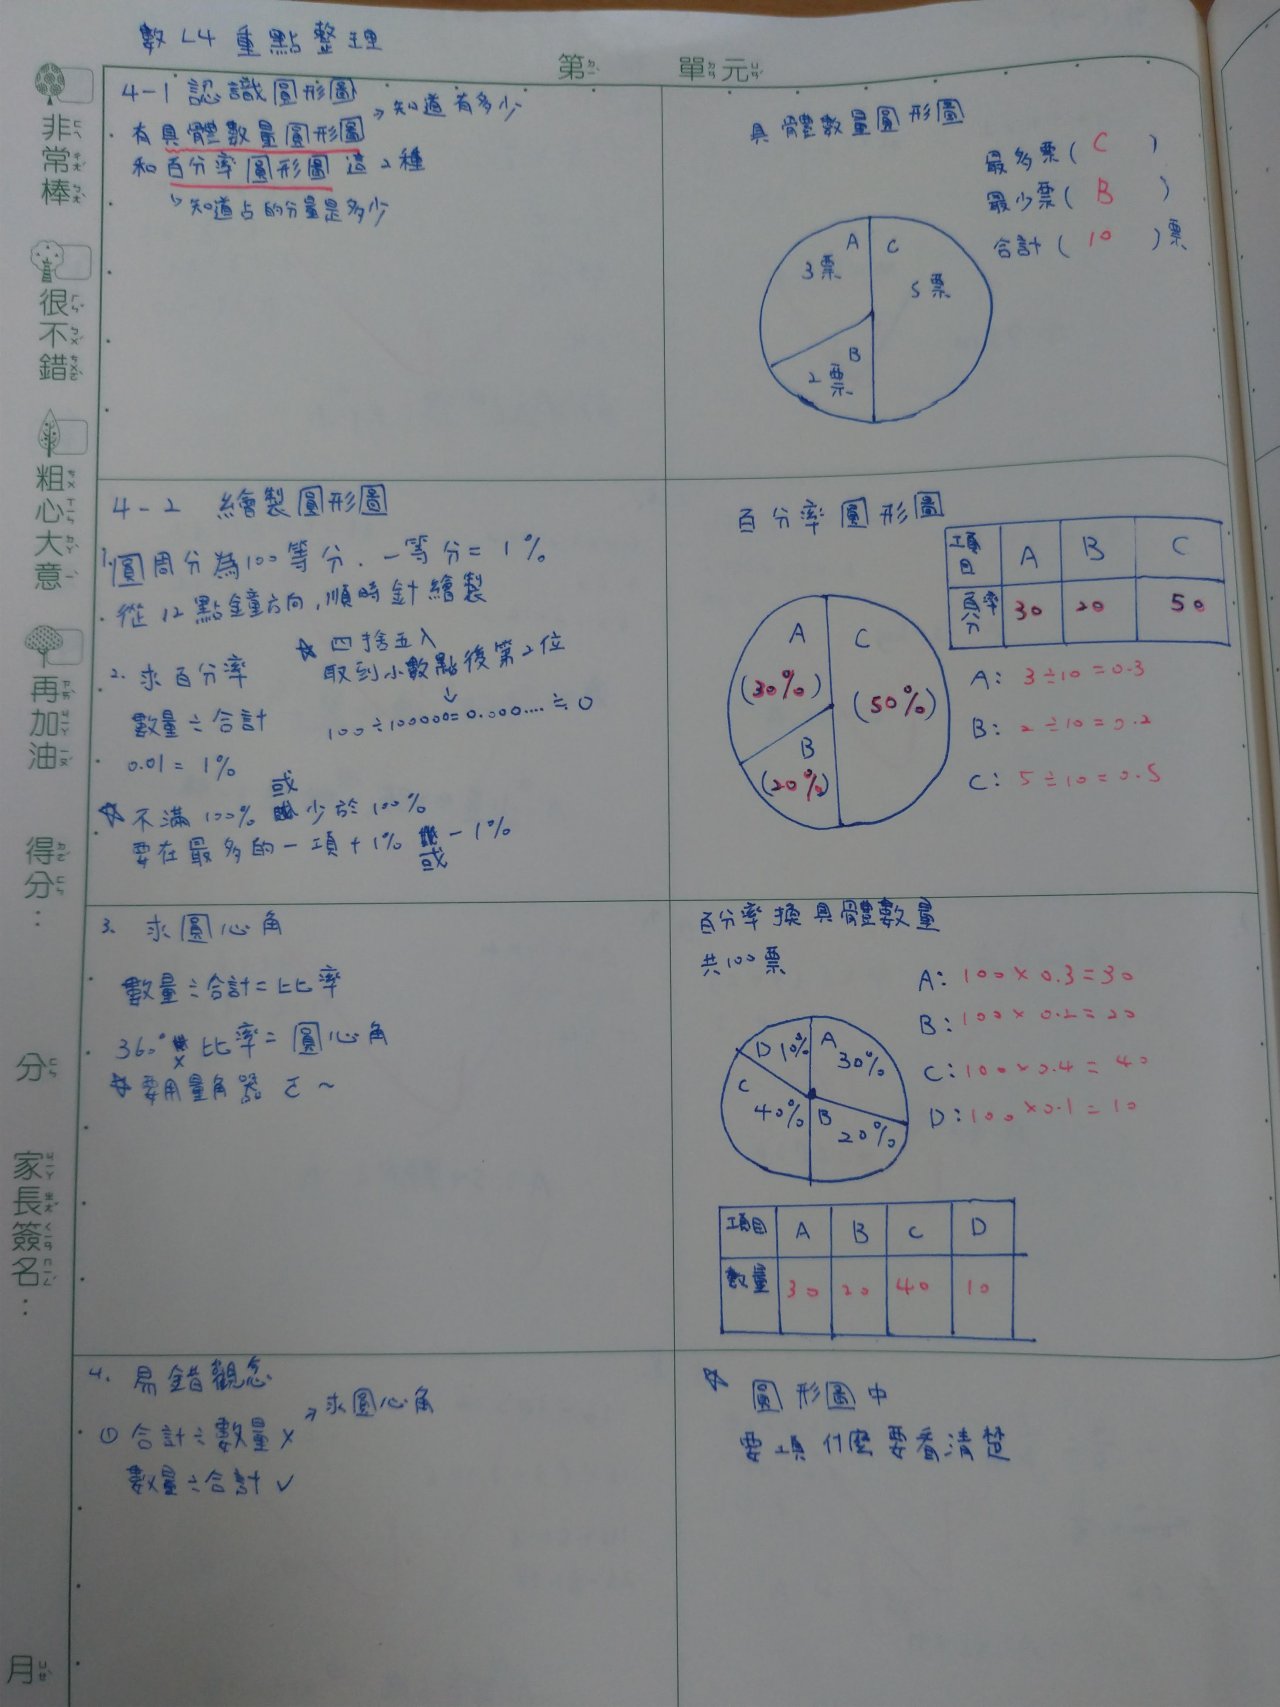 數 L4 重點整理
第 單元
非常棒
很不錯
粗心大意
再加油
得分：
分
家長簽名：
月
4-1 認識圓形圖
有具體數量圓形圖 →知道有多少
和百分率圓形圖 這2種
↳知道占的分量是多少
具體數量圓形圖
最多票( C )
最少票( B )
合計( 10 )票
A C
3票 5票
B
2票
4-2 繪製圓形圖
1. 圓周分為100等分，一等分=1%
從12點鐘方向，順時針繪製
2. 求百分率
☆四捨五入
取到小數點後第2位
↓
數量÷合計
100÷100000=0.000....≒0
0.01=1%
☆不滿100% 或 少於100%
要在最多的一項+1% 或 -1%
百分率圓形圖
項目 A B C
百分率 30 20 50
A C
(30%) (50%)
B
(20%)
A: 3÷10=0.3
B: 2÷10=0.2
C: 5÷10=0.5
3. 求圓心角
數量÷合計=比率
360°×比率=圓心角
☆要用量角器 ㄛ~
百分率換具體數量
共100票
A: 100×0.3=30
B: 100×0.2=20
C: 100×0.4=40
D: 100×0.1=10
D 10% A 30%
C 40% B 20%
項目 A B C D
數量 30 20 40 10
4. 易錯觀念
①合計÷數量 × →求圓心角
數量÷合計 ✓
☆ 圓形圖中
要填什麼要看清楚